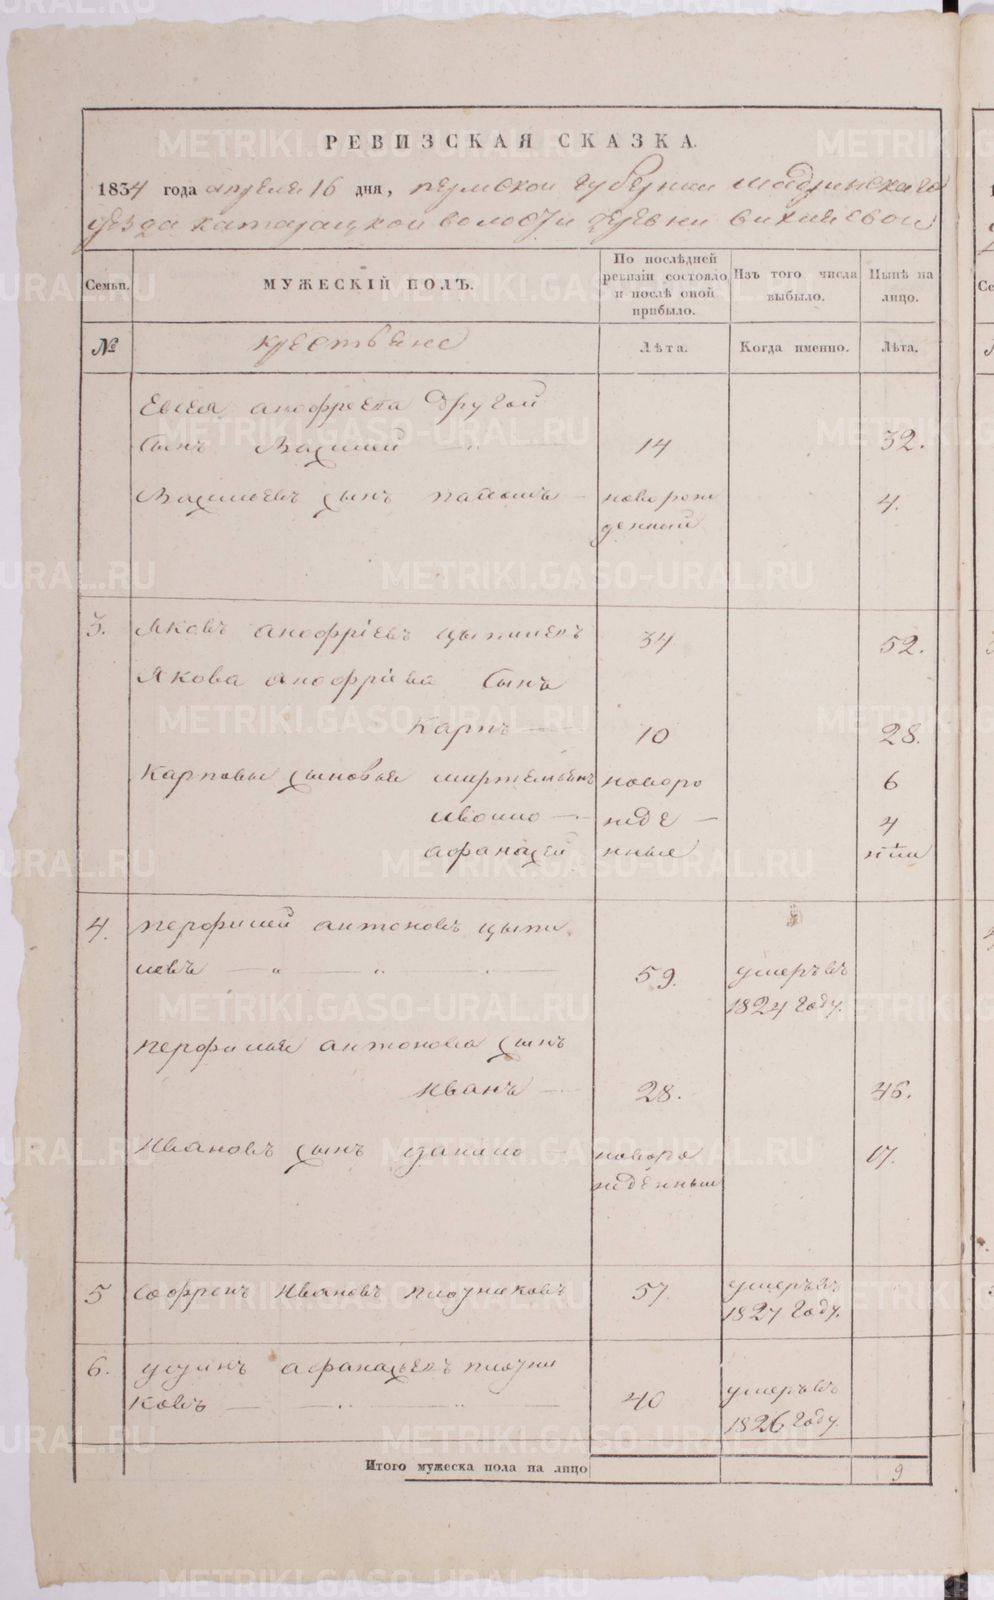 РЕВИЗСКАЯ СКАЗКА.
1834 года апреля 16 дня, пермской губернии шадринскаго
уезда катайской волости деревни
Семьи.
МУЖЕСКІЙ ПОЛЪ.
По послѣдней ревизіи состояло и послѣ оной прибыло.
Изъ того числа выбыло.
Нынѣ на лицо.
№
крестьяне
Лѣта.
Когда именно.
Лѣта.
Евсея анофреева другой
сынъ 14 32.
сынъ новорож 4.
денный
3. Яковъ анофріевъ 34 52.
Якова анофріева сынъ
Карпъ 10 28.
Карповы сыновья новоро 6
жде 4
афанасей нныя
4. перфилей антоновъ цыпи
левъ 59. умеръ въ
1824 году.
перфилья антонова сынъ
Иванъ 28. 46.
Ивановъ сынъ данило новоро 17.
жденный
5 Софронъ Ивановъ плотниковъ 57. умеръ въ
1827 году.
6. афанасьевъ плотни
ковъ 40 умеръ въ
1826 году.
Итого мужеска пола на лицо 9
METRIKI.GASO-URAL.RU